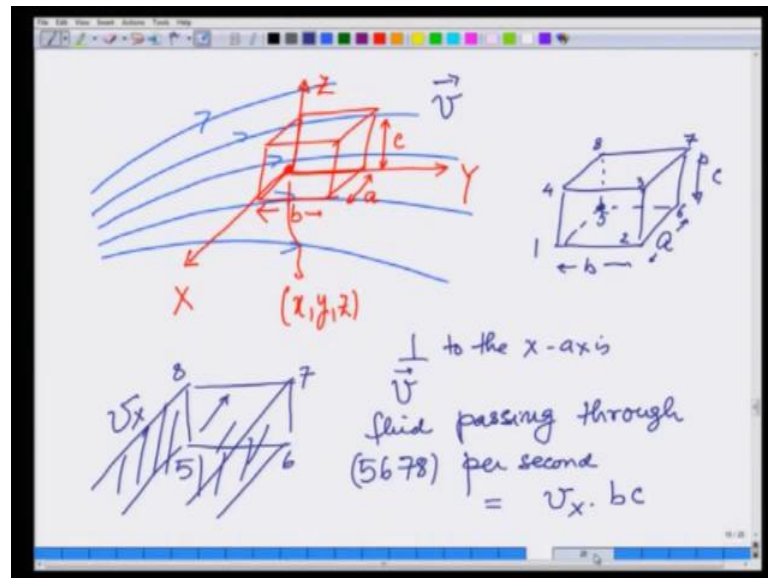 File Edit View Insert Actions Tools Help
Z
v
c
Y
a
b
X
(x,y,z)
8
7
4
3
c
5
6
1
2
a
b
⊥ to the x-axis
v
fluid passing through
(5678) per second
= vx. bc
8
7
vx
5
6